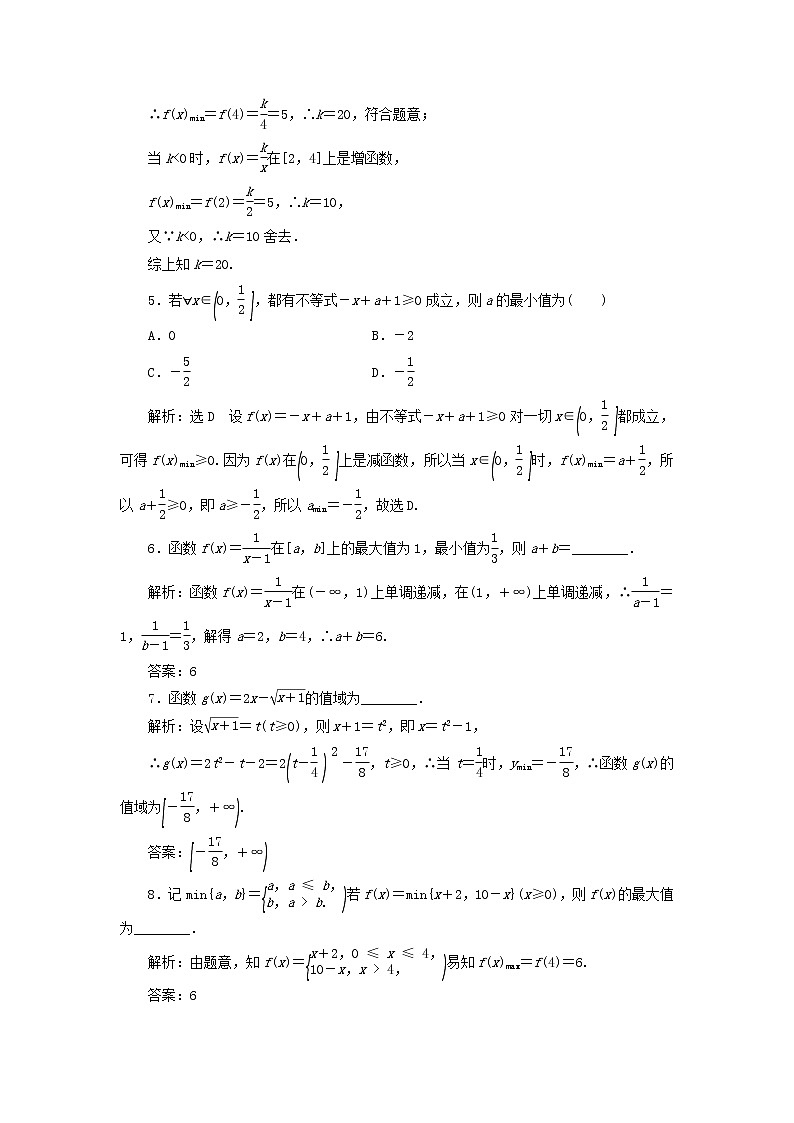 ∴f(x)min=f(4)=k/4=5,∴k=20,符合题意;
当k<0时,f(x)=k/x在[2,4]上是增函数,
f(x)min=f(2)=k/2=5,∴k=10,
又∵k<0,∴k=10舍去.
综上知k=20.
5.若∀x∈(0,1/2],都有不等式-x+a+1≥0成立,则a的最小值为(  )
A.0 B.-2
C.-5/2 D.-1/2
解析:选D 设f(x)=-x+a+1,由不等式-x+a+1≥0对一切x∈(0,1/2]都成立,
可得f(x)min≥0.因为f(x)在(0,1/2]上是减函数,所以当x∈(0,1/2]时,f(x)min=a+1/2,所
以a+1/2≥0,即a≥-1/2,所以amin=-1/2,故选D.
6.函数f(x)=1/(x-1)在[a,b]上的最大值为1,最小值为1/3,则a+b=________.
解析:函数f(x)=1/(x-1)在(-∞,1)上单调递减,在(1,+∞)上单调递减,∴1/(a-1)=
1,1/(b-1)=1/3,解得a=2,b=4,∴a+b=6.
答案:6
7.函数g(x)=2x-√(x+1)的值域为________.
解析:设√(x+1)=t(t≥0),则x+1=t²,即x=t²-1,
∴g(x)=2t²-t-2=2(t-1/4)²-17/8,t≥0,∴当t=1/4时,ymin=-17/8,∴函数g(x)的
值域为[-17/8,+∞).
答案:[-17/8,+∞)
8.记min{a,b}={a,a≤b, b,a>b. 若f(x)=min{x+2,10-x}(x≥0),则f(x)的最大值
为________.
解析:由题意,知f(x)={x+2,0≤x≤4, 10-x,x>4, 易知f(x)max=f(4)=6.
答案:6